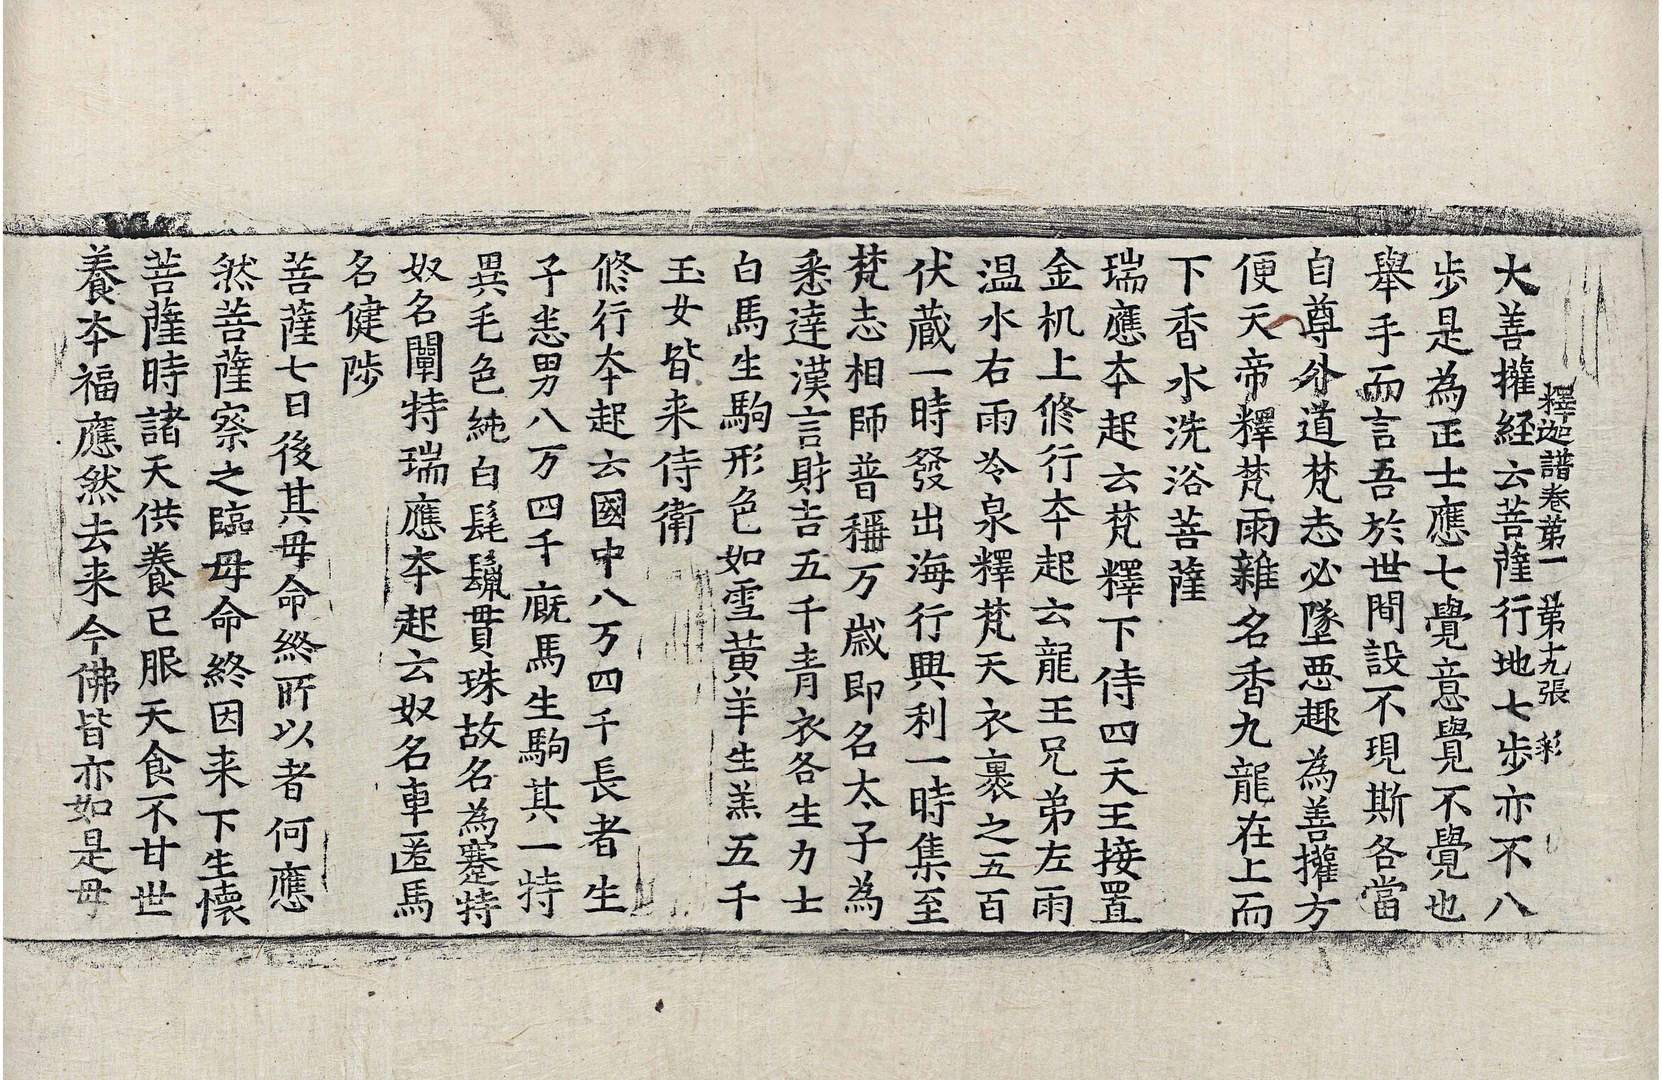 釋迦譜卷第一　第十九張　彩
大善攉経云菩薩行地七步亦不八
步是為正士應七覺意覺不覺也
舉手而言吾於世間設不現斯各當
自尊外道梵志必墜悪趣為善攉方
便天帝釋梵雨雜名香九龍在上而
下香水洗浴菩薩
瑞應夲起云梵釋下侍四天王接置
金机上修行夲起云龍王兄弟左雨
温水右雨冷泉釋梵天衣裹之五百
伏藏一時發出海行興利一時集至
梵志相師普稱万歳即名太子為
悉達漢言財吉五千青衣各生力士
白馬生駒形色如雪黄羊生羔五千
玉女皆来侍衛
修行夲起云國中八万四千長者生
子悉男八万四千廐馬生駒其一特
異毛色純白髦鬣貫珠故名為蹇特
奴名闡特瑞應夲起云奴名車匿馬
名健陟
菩薩七日後其母命終所以者何應
然菩薩察之臨母命終因来下生懷
菩薩時諸天供養已服天食不甘世
養夲福應然去来今佛皆亦如是母